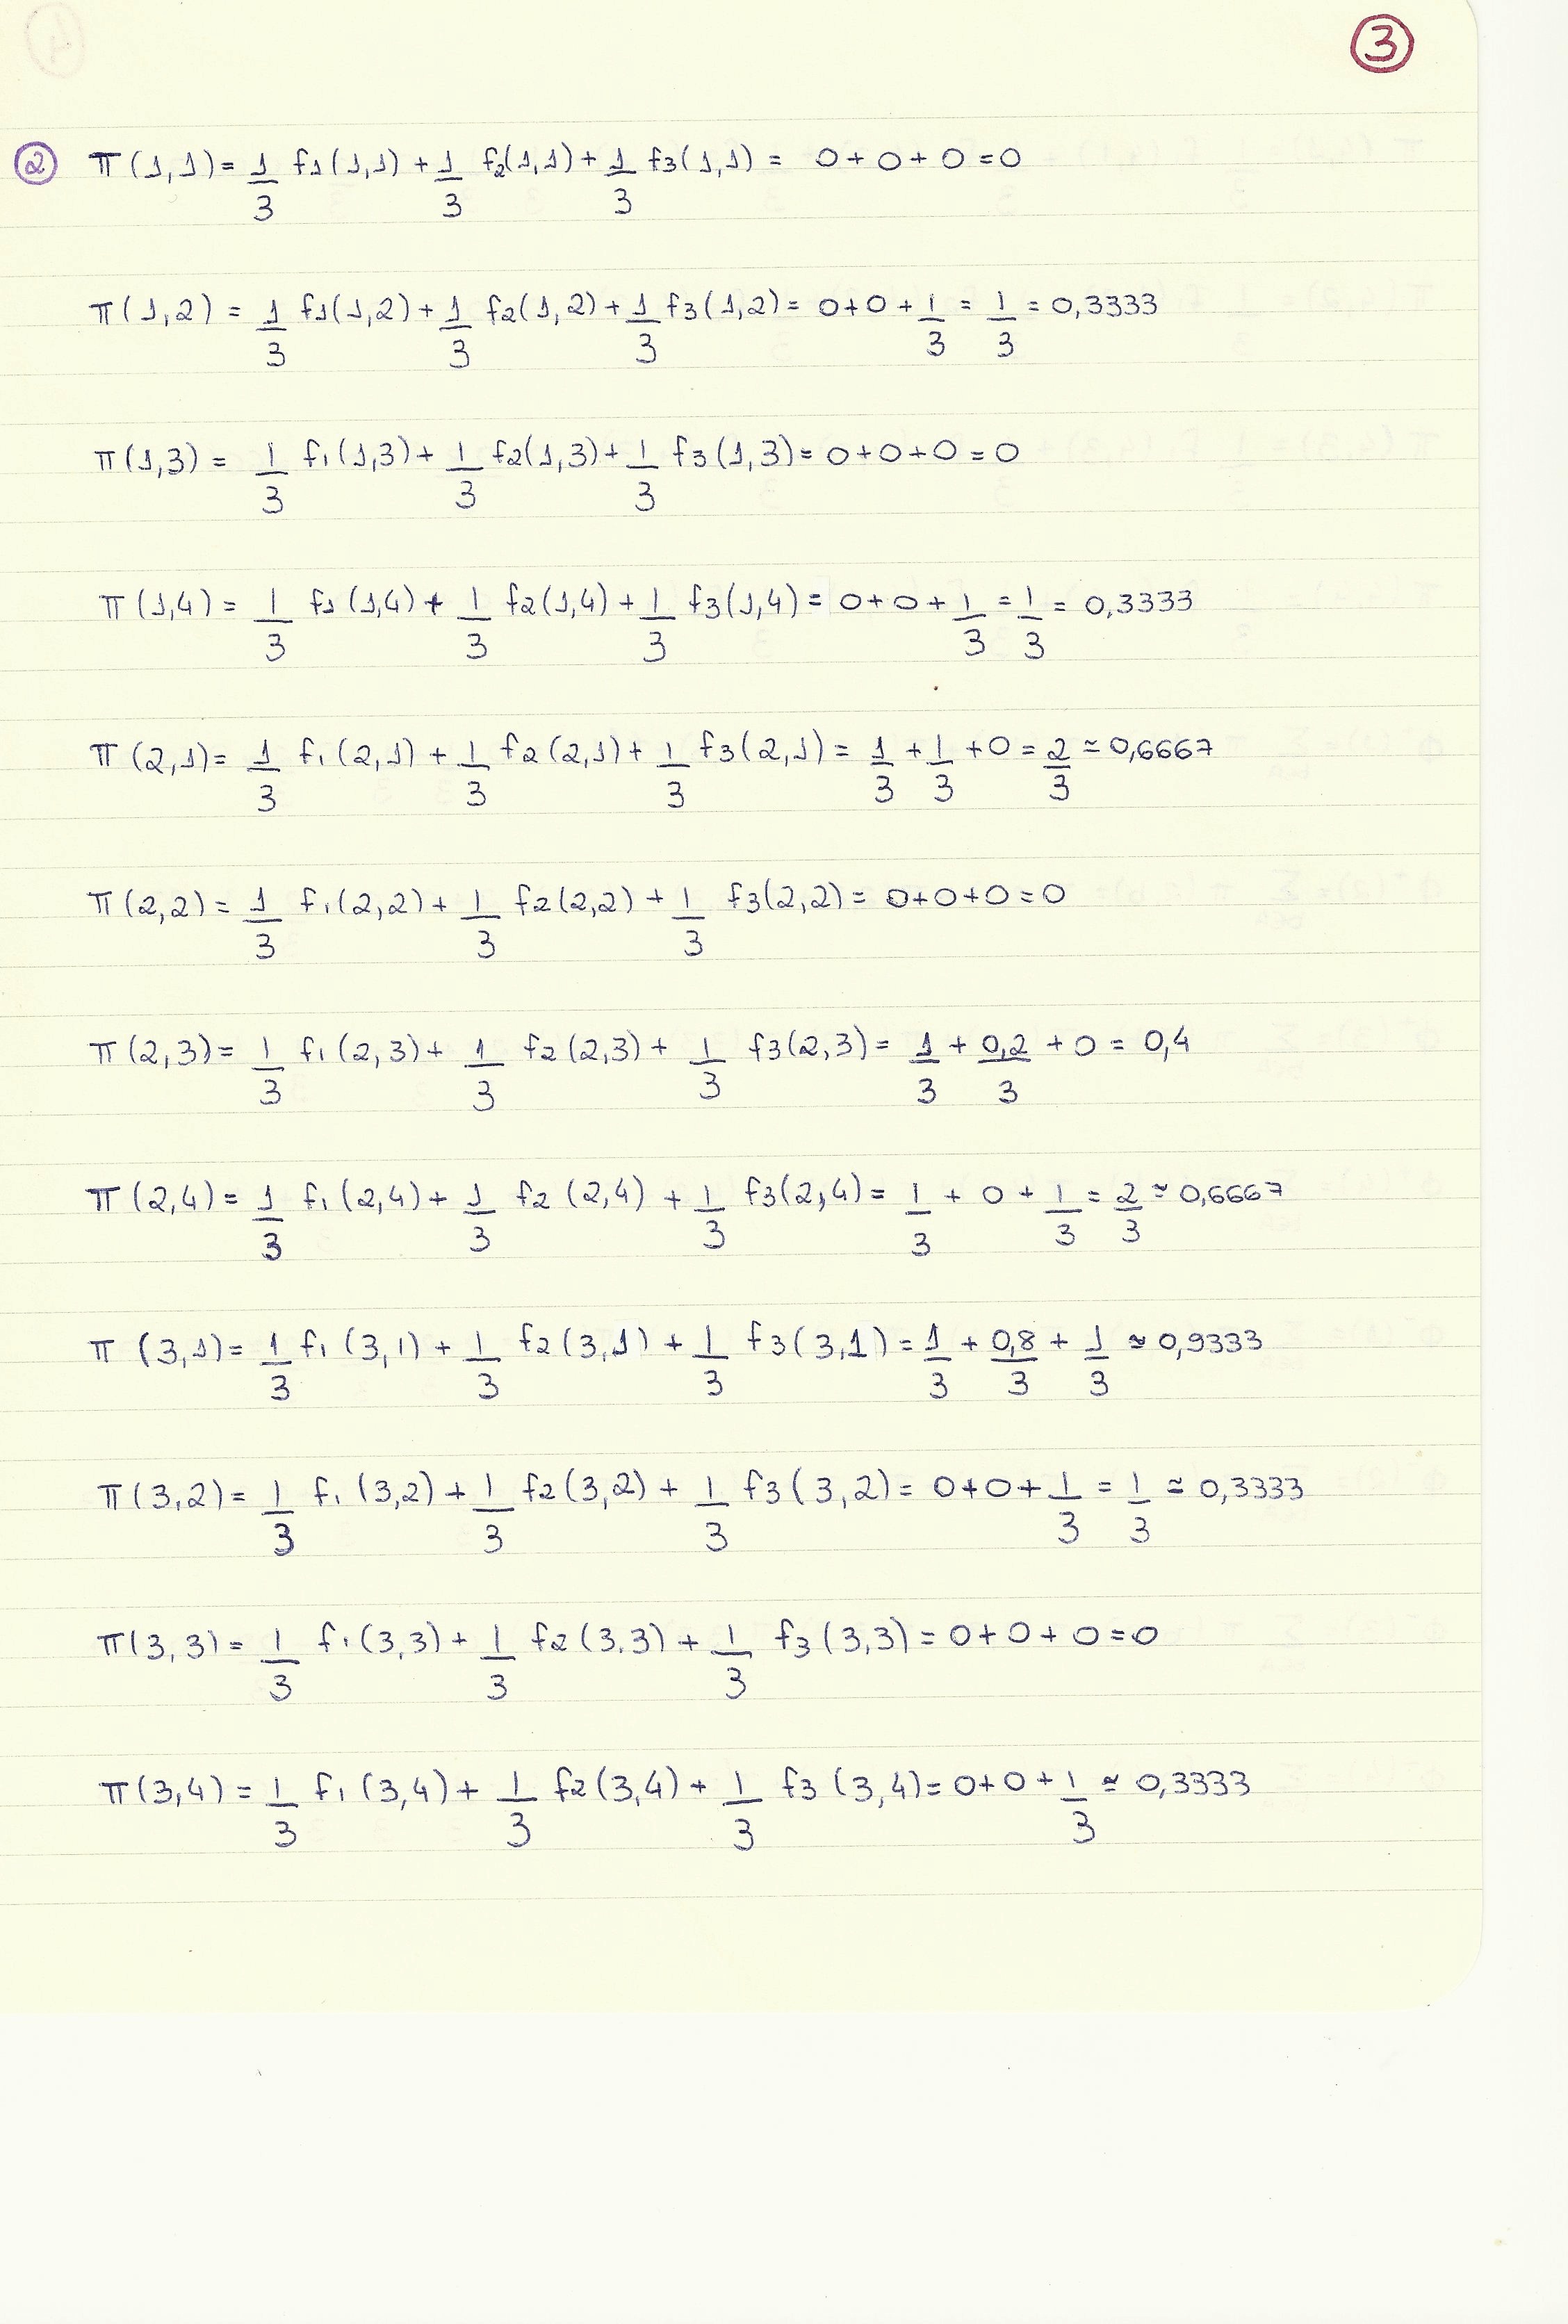 3
② π(1,1) = 1/3 f1(1,1) + 1/3 f2(1,1) + 1/3 f3(1,1) = 0+0+0=0
π(1,2) = 1/3 f1(1,2) + 1/3 f2(1,2) + 1/3 f3(1,2) = 0+0+1/3 = 1/3 = 0,3333
π(1,3) = 1/3 f1(1,3) + 1/3 f2(1,3) + 1/3 f3(1,3) = 0+0+0=0
π(1,4) = 1/3 f1(1,4) + 1/3 f2(1,4) + 1/3 f3(1,4) = 0+0+1/3 = 1/3 = 0,3333
π(2,1) = 1/3 f1(2,1) + 1/3 f2(2,1) + 1/3 f3(2,1) = 1/3 + 1/3 + 0 = 2/3 ≃ 0,6667
π(2,2) = 1/3 f1(2,2) + 1/3 f2(2,2) + 1/3 f3(2,2) = 0+0+0=0
π(2,3) = 1/3 f1(2,3) + 1/3 f2(2,3) + 1/3 f3(2,3) = 1/3 + 0,2/3 + 0 = 0,4
π(2,4) = 1/3 f1(2,4) + 1/3 f2(2,4) + 1/3 f3(2,4) = 1/3 + 0 + 1/3 = 2/3 ≃ 0,6667
π(3,1) = 1/3 f1(3,1) + 1/3 f2(3,1) + 1/3 f3(3,1) = 1/3 + 0,8/3 + 1/3 ≃ 0,9333
π(3,2) = 1/3 f1(3,2) + 1/3 f2(3,2) + 1/3 f3(3,2) = 0+0+1/3 = 1/3 ≃ 0,3333
π(3,3) = 1/3 f1(3,3) + 1/3 f2(3,3) + 1/3 f3(3,3) = 0+0+0=0
π(3,4) = 1/3 f1(3,4) + 1/3 f2(3,4) + 1/3 f3(3,4) = 0+0+1/3 ≃ 0,3333